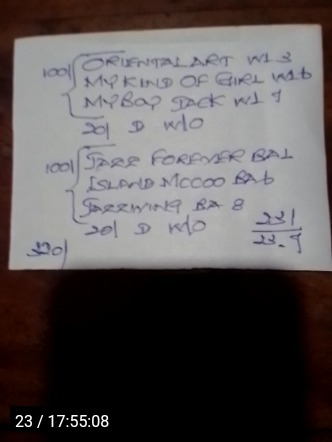 100/ ORIENTAL ART W1 3
MY KIND OF GIRL W1 6
MY BOY JACK W1 7
20/ D W/O
100/ JAZZ FOREVER BA 1
ISLAND MCCOO BA 6
JAZZ WING BA 8
20/ D W/O
231
23.9
320/
23 / 17:55:08